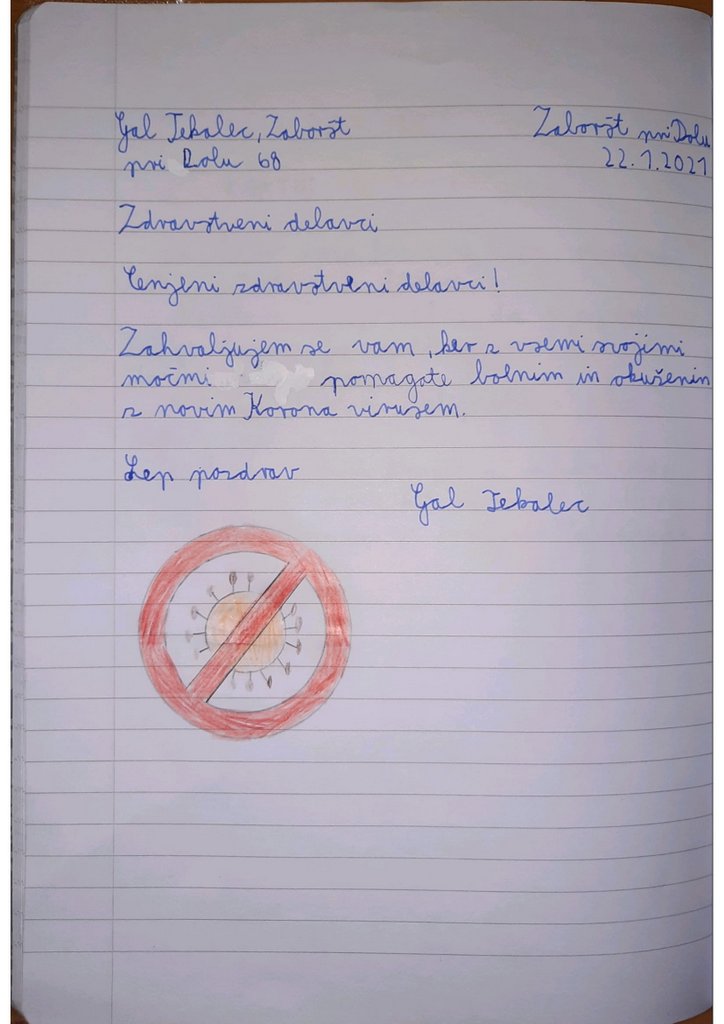 Gal Tekalec, Zaboršt
pri Dolu 68
Zaboršt pri Dolu
22.1.2021
Zdravstveni delavci
Cenjeni zdravstveni delavci!
Zahvaljujem se vam, ker z vsemi svojimi
močmi pomagate bolnim in okuženim
z novim Korona virusem.
Lep pozdrav
Gal Tekalec